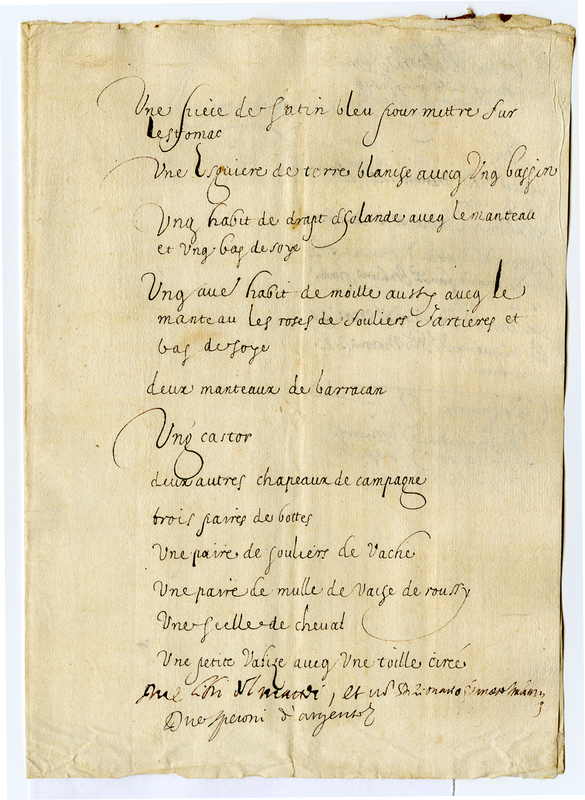 Une piece de satin bleu pour mettre sur
lestomac
Une Esguiere de terre blanche avecq Ung bassin
Ung habit de drapt dholande avecq le manteau
et Ung bas de soye
Ung aue habit de moille aussy avecq le
manteau les roses de souliers Jartieres et
bas de soye
deux manteaux de barracan
Ung castor
deux autres chapeaux de campagne
trois paires de bottes
Une paire de souliers de Vache
Une paire de mulle de Vache de roussy
Une scelle de cheval
Une petite Valize avecq Une toille cirée
et
Due speroni d'argento